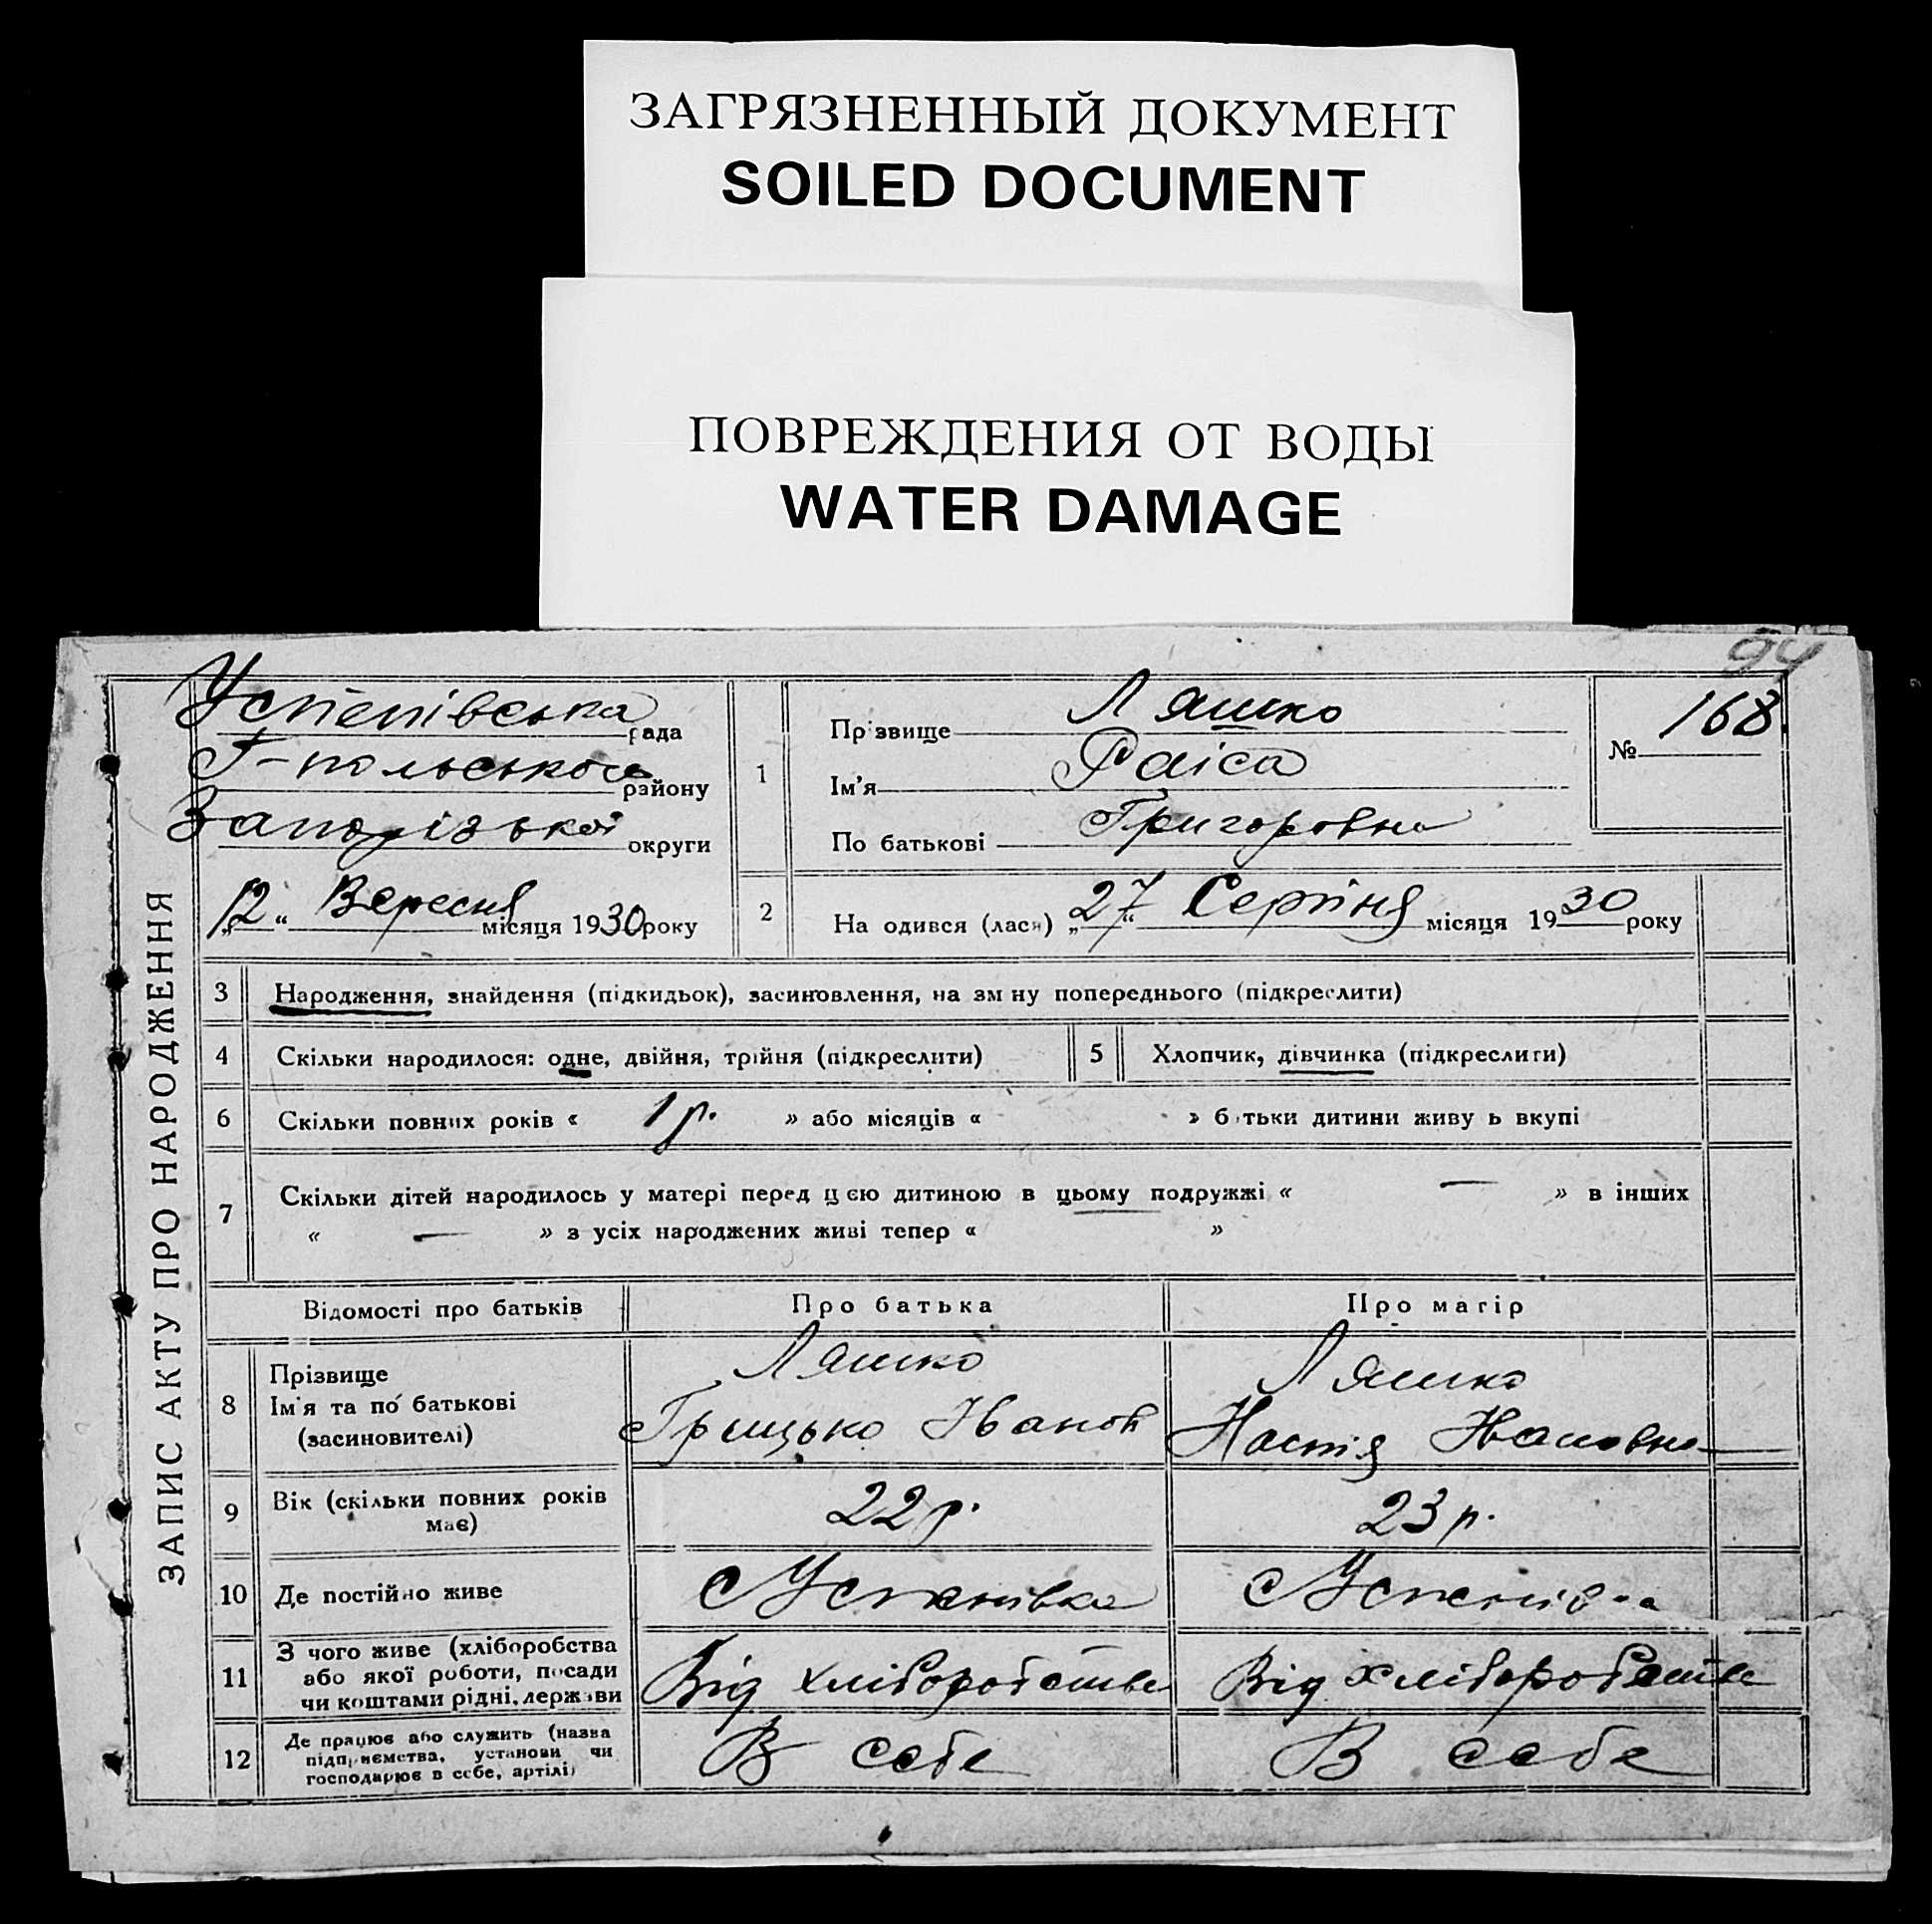 ЗАГРЯЗНЕННЫЙ ДОКУМЕНТ
SOILED DOCUMENT
ПОВРЕЖДЕНИЯ ОТ ВОДЫ
WATER DAMAGE
94
ЗАПИС АКТУ ПРО НАРОДЖЕННЯ
Успенівська рада
Г-польського району
Запорізької округи
"12" Вересня місяця 1930 року
1
Прізвище Ляшко
Ім'я Раїса
По батькові Григоровна
№ 168.
2 На одився (лася) "27" Серпня місяця 1930 року
3 Народження, знайдення (підкидьок), засиновлення, на зм ну попереднього (підкреслити)
4 Скільки народилося: одне, двійня, трійня (підкреслити) 5 Хлопчик, дівчинка (підкреслити)
6 Скільки повних років « 1 р. » або місяців « » б тьки дитини живу ь вкупі
7 Скільки дітей народилось у матері перед ц єю дитиною в цьому подружжі « — » в інших
« — » з усіх народжених живі тепер « »
Відомості про батьків Про батька Про матір
8 Прізвище Ляшко Ляшко
Ім'я та по батькові Грицько Іванов Настя Ивановна
(засиновителі)
9 Вік (скільки повних років має) 22 р. 23 р.
10 Де постійно живе с Успенівка с Успенів-а
11 З чого живе (хліборобства
або якої роботи, посади
чи коштами рідні, держави Від хліборобства Від хліборобства
12 Де працює або служить (назва
підпр иємства, установи чи
господарює в себе, артілі) В себе В себе